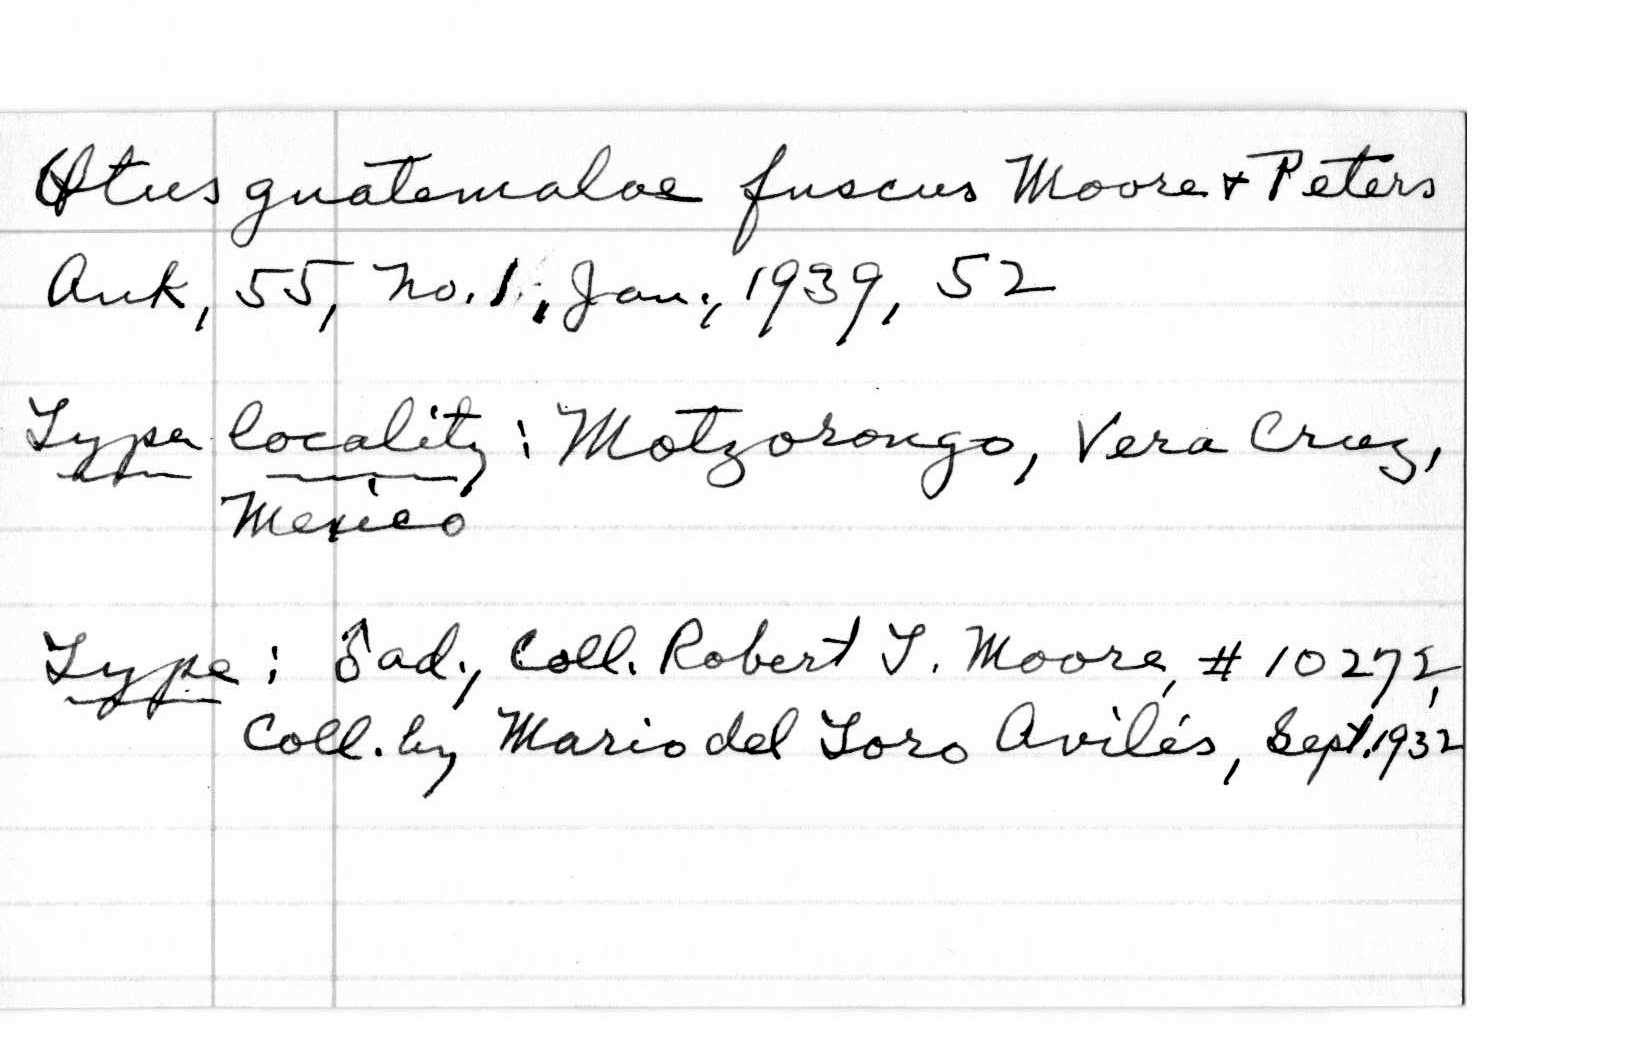 Otus guatemalae fuscus Moore & Peters
Auk, 55, No. 1, Jan., 1939, 52
Type locality: Motzorongo, Vera Cruz,
Mexico
Type: ♂ ad., Coll. Robert T. Moore, # 10272,
Coll. by Mario del Toro Avilés, Sept. 1932